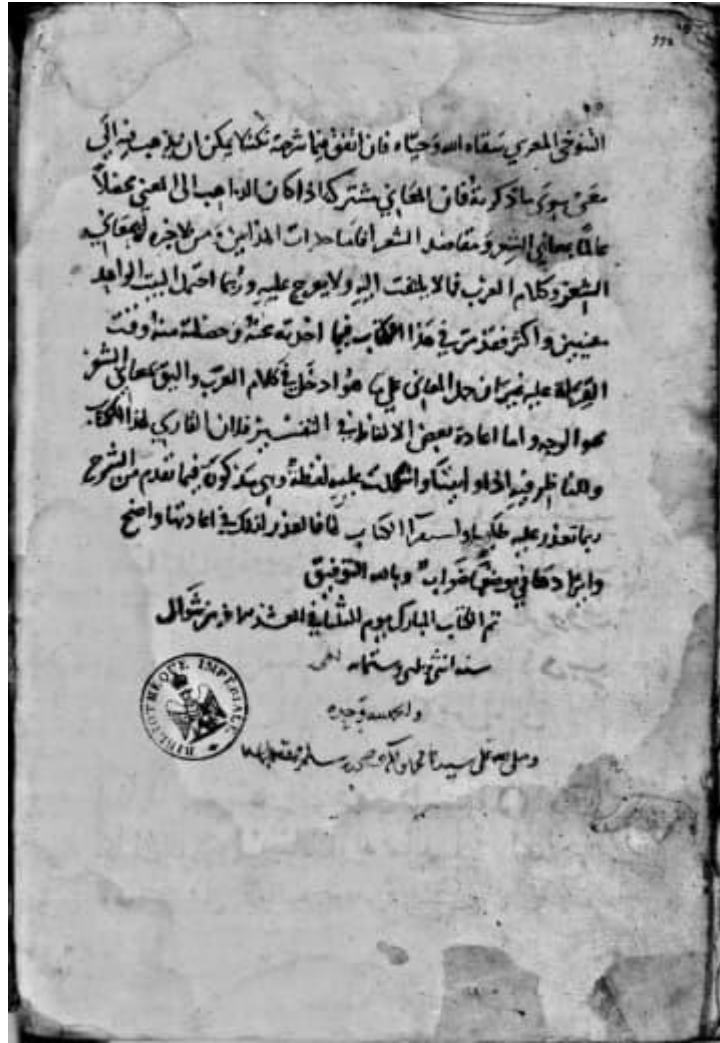 التنوخي المعري سقاه الله وحياه فان اتفق فيما شرحته نكتا يمكن ان يذهب فيه الى
معنى سوى ما ذكرته فان المعاني مشتركة اذا كان الذاهب الى المعنى
عالما بمعاني الشعر ومقاصد الشعرا فاما ومن لا خبره له بمعاني
الشعر وكلام العرب فما لا يلتفت اليه ولا يعوج عليه وربما احتمل البيت الواحد
معنيين واكثر فقد مر في هذا الكتاب فيما اخذته عنه وحفظته منه وقت
القراة عليه غير ان حمل المعاني على ما هو ادخل في كلام العرب واليق بمعاني الشعر
هو الوجه واما اعادة بعض الالفاظ في التفسير فلان القاري لهذا الكتاب
والناظر فيه اذا واشكلت عليه لفظة وهي مذكورة فيما تقدم من الشرح
ربما تعذر عليه طلبها الكتاب فالعذر لذلك في اعادتها واضح
وايرادها في صواب وبالله التوفيق
تم الكتاب المبارك يوم الثلثا في من شوال
سنة وستمايه
والحمد لله وحده
وصلى الله على سيدنا محمد واله وصحبه وسلم
BIBLIOTHEQUE IMPERIALE